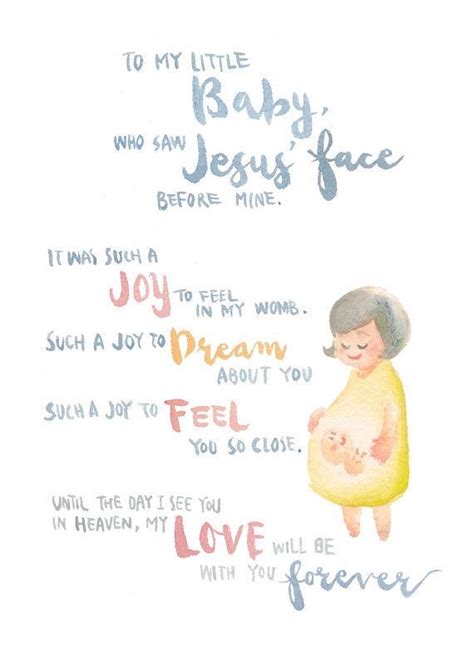 TO MY LITTLE
Baby,
WHO SAW Jesus' face
BEFORE MINE.
IT WAS SUCH A
JOY TO FEEL
IN MY WOMB.
SUCH A JOY TO Dream
ABOUT YOU
SUCH A JOY TO FEEL
YOU SO CLOSE.
UNTIL THE DAY I SEE YOU
IN HEAVEN, MY
LOVE WILL BE
WITH YOU forever